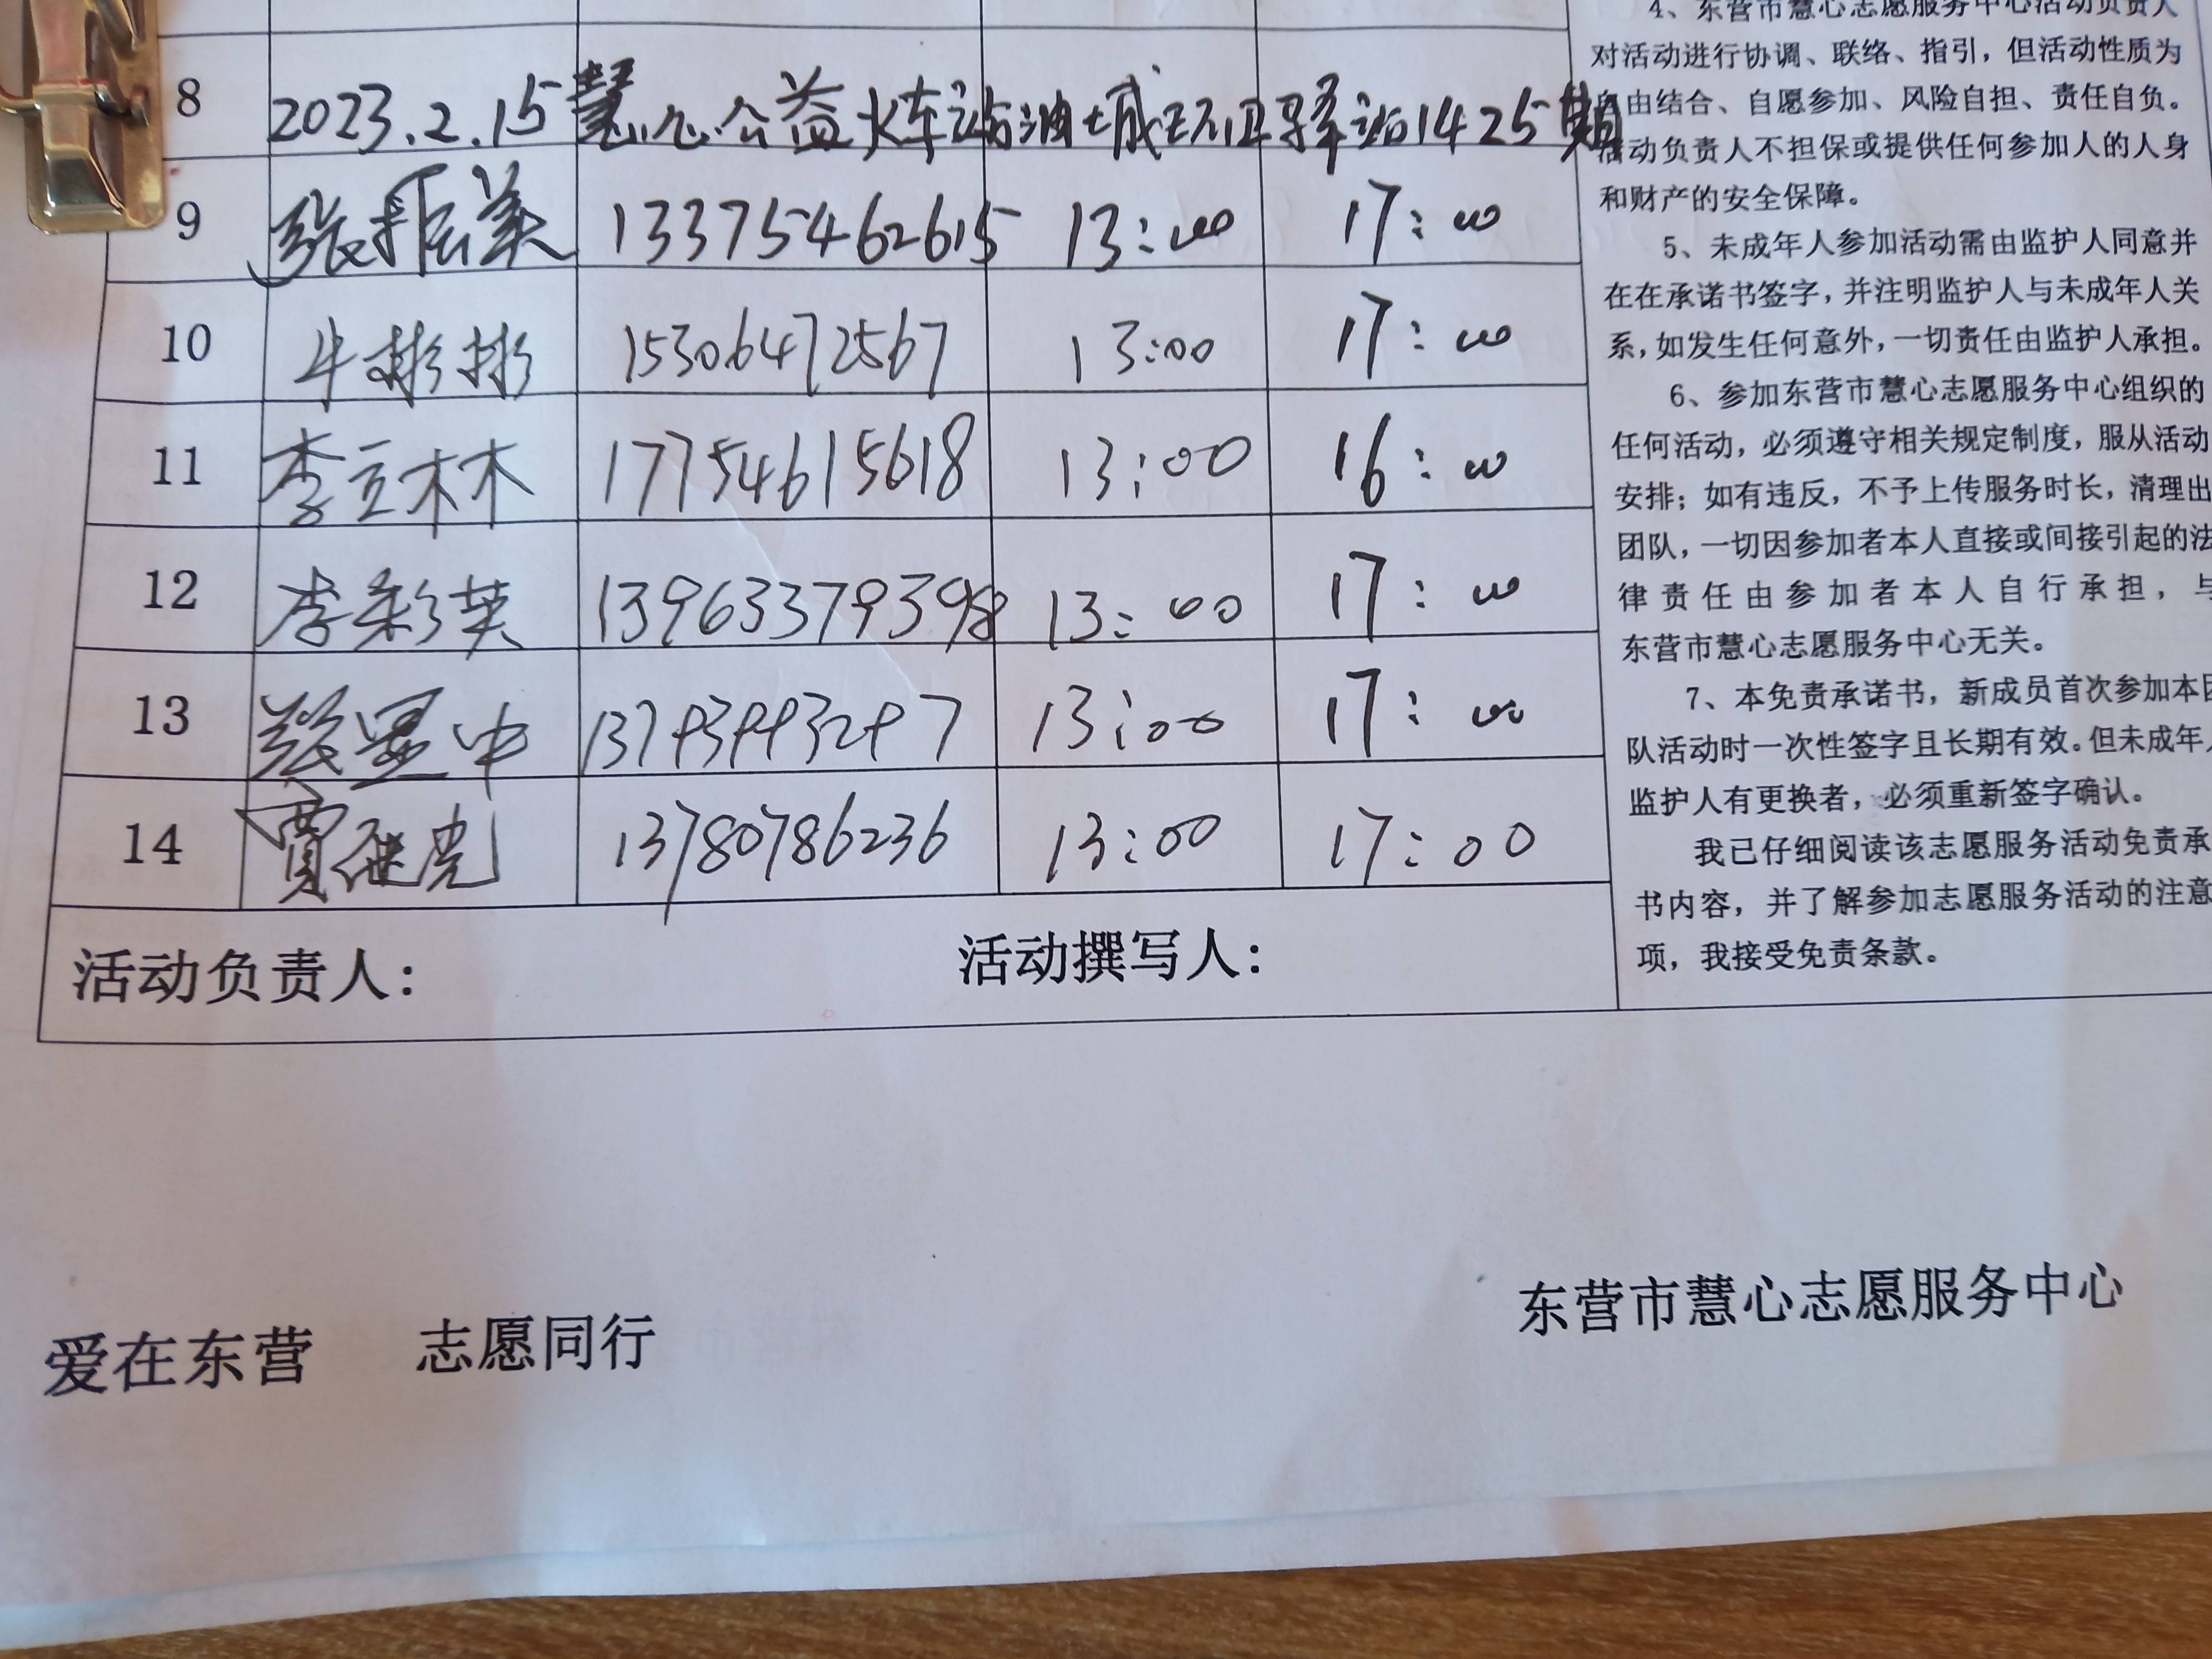 8 2023.2.15慧心公益火车站油城环卫驿站1425期
9 张振美 13375462615 13:00 17:00
10 牛彬彬 15306472567 13:00 17:00
11 李立林 17754615618 13:00 16:00
12 李彩英 13963379398 13:00 17:00
13 13:00 17:00
14 贾继光 13780786236 13:00 17:00
活动负责人: 活动撰写人:
4、东营市慧心志愿服务中心活动负责人
对活动进行协调、联络、指引，但活动性质为
自由结合、自愿参加、风险自担、责任自负。
活动负责人不担保或提供任何参加人的人身
和财产的安全保障。
5、未成年人参加活动需由监护人同意并
在在承诺书签字，并注明监护人与未成年人关
系，如发生任何意外，一切责任由监护人承担。
6、参加东营市慧心志愿服务中心组织的
任何活动，必须遵守相关规定制度，服从活动
安排；如有违反，不予上传服务时长，清理出
团队，一切因参加者本人直接或间接引起的法
律责任由参加者本人自行承担，与
东营市慧心志愿服务中心无关。
7、本免责承诺书，新成员首次参加本团
队活动时一次性签字且长期有效。但未成年人
监护人有更换者，必须重新签字确认。
我已仔细阅读该志愿服务活动免责承
书内容，并了解参加志愿服务活动的注意
项，我接受免责条款。
爱在东营 志愿同行
东营市慧心志愿服务中心